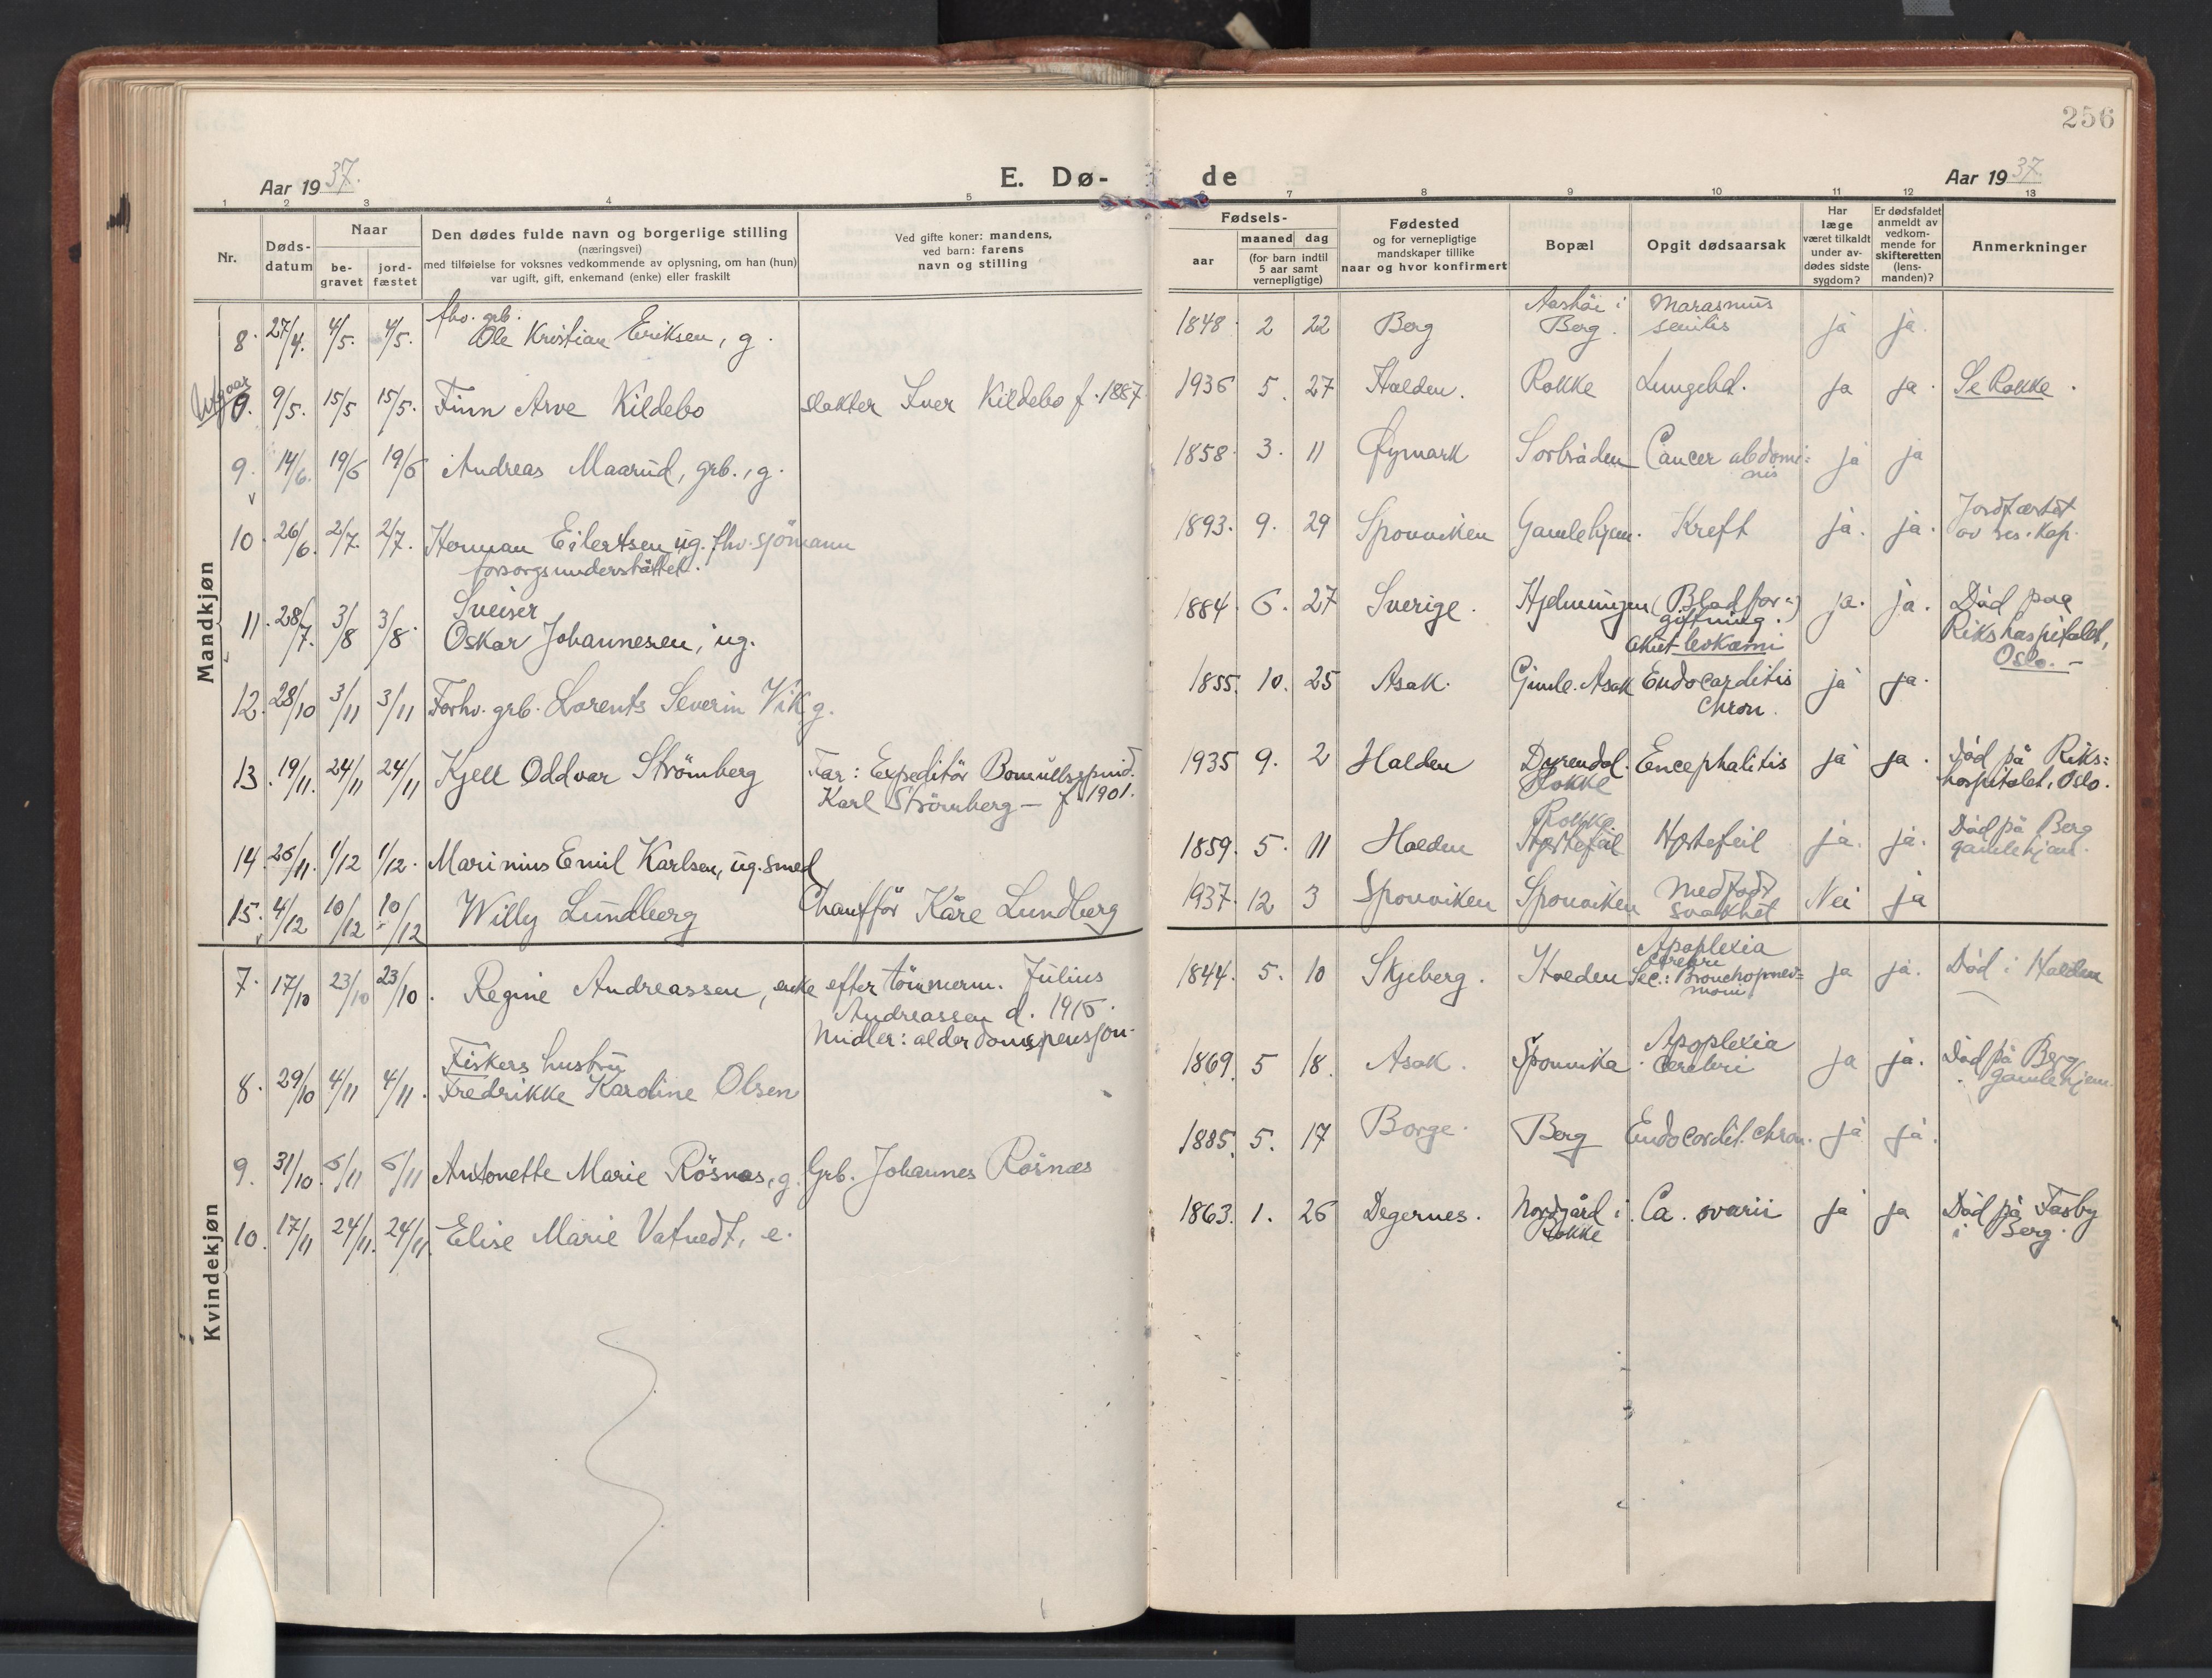 256
Aar 1937.
E. Dø-
de
Aar 1937.
1 2 3 4 5 6 7 8 9 10 11 12 13
Nr.
Døds-
datum
Naar
be-
gravet
jord-
fæstet
Den dødes fulde navn og borgerlige stilling
(næringsvei)
med tilføielse for voksnes vedkommende av oplysning, om han (hun)
var ugift, gift, enkemand (enke) eller fraskilt
Ved gifte koner: mandens,
ved barn: farens
navn og stilling
Fødsels-
aar
maaned dag
(for barn indtil
5 aar samt
vernepligtige)
Fødested
og for vernepligtige
mandskaper tillike
naar og hvor konfirmert
Bopæl
Opgit dødsaarsak
Har
læge
været tilkaldt
under av-
dødes sidste
sygdom?
Er dødsfaldet
anmeldt av
vedkom-
mende for
skifteretten
(lens-
manden)?
Anmerkninger
Mandkjøn
fhv. grb.
8. 27/4. 4/5. 4/5. Ole Kristian Eriksen, g. 1848. 2 22 Berg Aashöi i Berg. Marasmus senilis ja ja.
Utgaar
9. 9/5. 15/5 15/5. Finn Arve Kildebo slakter Iver Kildebo f. 1887. 1936 5. 27 Halden. Rokke Lungebet. ja ja. Se Rokke.
9. 14/6. 19/6 19/6 Andreas Maarud, grb., g. 1858. 3. 11 Øymark Sorbråden Cancer abdomi=
nis ja ja
10. 26/6. 2/7. 2/7. Herman Eilertsen ug. fhv. sjömann
forsorgsunderstöttet. 1893. 9. 29 Sponviken Gamlehjem. Kreft ja. ja. Jordfæstet
av res. kap.
Sveiser
11. 28/7. 3/8 3/8. Oskar Johannesen, ug. 1884. 6. 27 Sverige. Hjelmungen (Blodfor=)
giftning.
akut leukæmi ja. ja. Död paa
Rikshospitalet,
Oslo. -
12. 28/10 3/11 3/11 Forhv. grb. Lorents Severin Vik g. 1855. 10. 25 Asak. Gimle. Asak Endocarditis
Chron. ja ja.
13. 19/11. 24/11 24/11 Kjell Oddvar Strömberg Far: Expeditör Bomullsspind.
Karl Strömberg - f. 1901. 1935 9. 2 Halden Dyrendal.
Rokke Encephalitis ja ja. Død på Riks=
hospitalet, Oslo.
14. 26/11. 1/12 1/12. Marinius Emil Karlsen, ug. smed 1859. 5. 11 Halden Rokke
Hjertefeil Hjertefeil ja. ja. Död på Berg
gamlehjem.
15. 4/12 10/12 10/12 Willy Lundberg Chaufför Kåre Lundberg 1937. 12 3 Sponviken Sponviken Medfödt
svakhet Nei ja
Kvindekjøn
7. 17/10 23/10 23/10. Regine Andreassen, enke efter tömmerm. Julius
Andreassen d. 1915.
Midler: alderdomspensjon. 1844. 5. 10 Skjeberg. Halden Apoplexia
cerebri
Sec.: Bronchopneu=
moni ja ja. Död i Halden
Fiskers hustru
8. 29/10 4/11 4/11. Fredrikke Karoline Olsen 1869. 5 18. Asak. Sponvika Apoplexia
cerebri ja ja. Död på Berg
gamlehjem.
9. 31/10. 5/11 5/11 Antonette Marie Rösnæs, g. Grb. Johannes Rösnæs 1885. 5. 17 Borge. Berg Endocardit. chron. ja ja.
10. 17/11 24/11. 24/11 Elise Marie Vatvedt, e. 1863. 1. 26 Degernes. Nordgård i
Rokke Ca. ovarii ja ja Död på Fasby
i Berg.